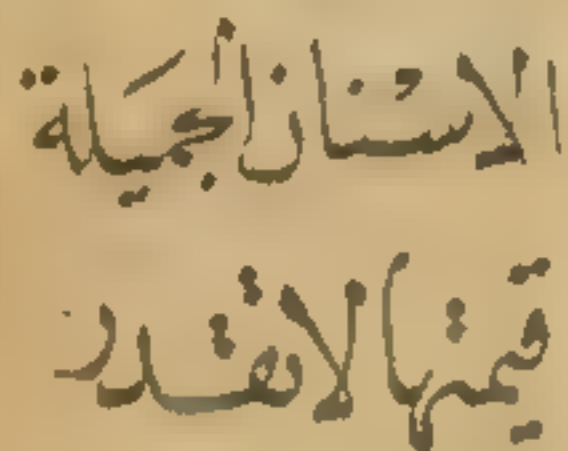 الاسنان الجميلة
قيمتها لاتقدر